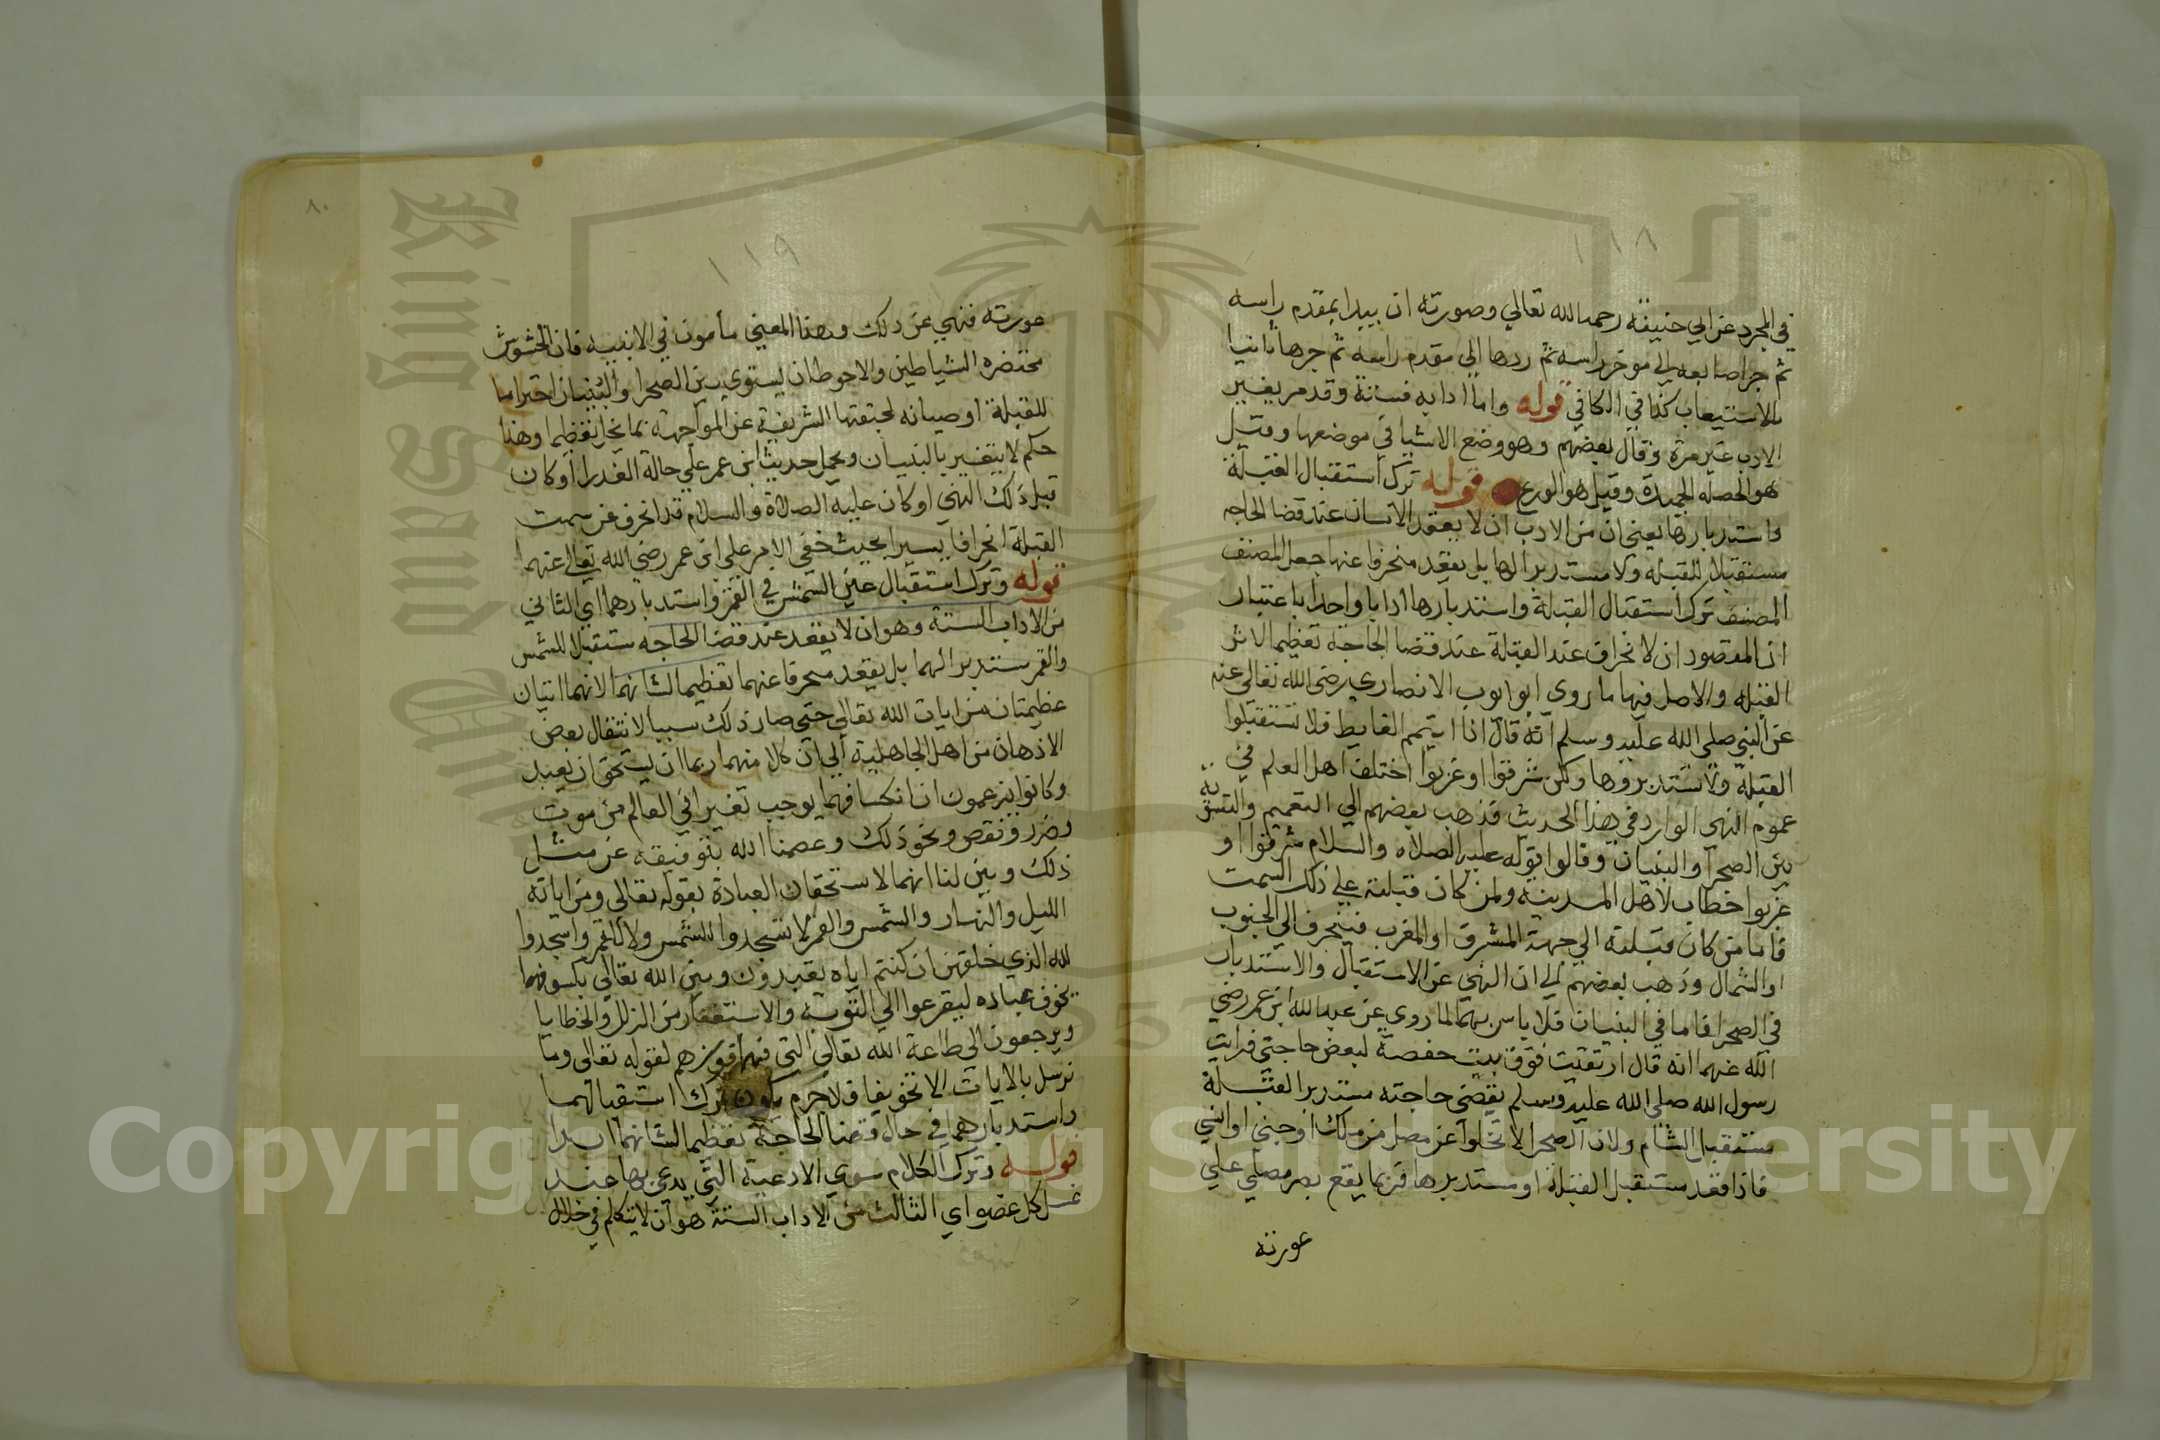 ١١٨
في المجرد عن ابي حنيفة رحمه الله تعالي وصورته ان يبدا بمقدم راسه
ثم جر اصابعه الي موخر راسه ثم ردها الي مقدم راسه ثم جرها ثانيا
بالاستيعاب كذا في الكافي قوله واما ادابه فستة وقد مر تفسير
الادب غير مرة وقال بعضهم وهو وضع الاشيا في موضعها وقيل
هو الخصلة الحميدة وقيل هو الورع قوله ترك استقبال القبلة
واستدبارها يعني ان من الادب ان لا يقعد الانسان عند قضا الحاجه
مستقبلا للقبله ولا مستدبرا لها بل يقعد منحرفا عنها جعل المصنف
المصنف ترك استقبال القبلة واستدبارها ادابا واحدا باعتبار
ان المقصود ان لانحراف عند القبلة عند قضا الحاجة تعظيما لاش
القبله والاصل فيها ما روي ابو ايوب الانصاري رضي الله تعالي عنه
عن النبي صلي الله عليه وسلم انه قال اذا ايتم الغايط فلا تستقبلوا
القبلة ولا تستدبروها ولكن شرقوا او غربوا اختلف اهل العلم في
عموم النهي الوارد في هذا الحديث فذهب بعضهم الي التعميم والتسوية
بين الصحرا والبنيان وقالوا بقوله عليه الصلاه والسلام شرقوا او
غربوا خطاب لاهل المدينه ولمن كان قبلته علي ذلك السمت
فاما من كان قبلته الي جهة المشرق او المغرب فينحرف الي الجنوب
او الشمال وذهب بعضهم الي ان النهي عن الاستقبال والاستدبار
في الصحرا فاما في البنيان فلا باس بهما لما روي عن عبد الله ابن عمر رضي
الله عنهما انه قال ارتقيت فوق بيت حفصة لبعض حاجتي فرايت
رسول الله صلي الله عليه وسلم يقضي حاجته مستدبر القبلة
مستقبل الشام ولان الصحرا لا تخلوا عن مصل من ملك او جني او انسي
فاذا قعد مستقبل القبلة او مستدبرها فربما يقع بصر مصلي علي
عورته
٨٠
١١٩
عورته فنهي عن ذلك وهذا المعني مامون في الابنية فان الحشوش
محتضره الشياطين والاحوط ان يستوي بين الصحرا والبنيان احتراما
للقبلة او صيانه لجهتها الشريفة عن المواجهة بما يخل تعظيما وهذا
حكم لا يتغير بالبنيان ويحمل حديث ابن عمر علي حالة العذر او كان
قبل ذلك النهي او كان عليه الصلاة والسلام قد انحرف عن سمت
القبلة انحرافا يسيرا بحيث خفي الامر علي ابن عمر رضي الله تعالي عنهما
قوله وترك استقبال عين الشمس في القمر واستدبارهما اي الثاني
من الاداب الستة وهو ان لا يقعد عند قضا الحاجه ستقبلا للشمس
والقمر ستدبرا لهما بل يقعد منحرفا عنهما تعظيما لشانهما لانهما ايتان
عظيمتان من ايات الله تعالي حتي صار ذلك سببا لانتقال بعض
الاذهان من اهل الجاهلية الي ان كلا منهما ربما ان يستحق ان يعبد
وكانوا يزعمون ان انكسافهما يوجب تغيرا في العالم من موت
وضرر ونقص ونحو ذلك وعصمنا الله بتوفيقه عن مثل
ذلك وبين لنا انهما لا ستحقان العبادة بقوله تعالي ومن اياته
الليل والنهار والشمس والقمر لا تسجدوا للشمس ولا للقمر واسجدوا
لله الذي خلقهن ان كنتم اياه تعبدون وبين الله تعالي بكسوفهما
يخوف عباده ليفزعوا الي التوبة والاستغفار من الزلل والخطايا
ويرجعون الي طاعة الله تعالي التي فيها فوزهم لقوله تعالي وما
نرسل بالايات الا تخويفا فلا جرم يكون ترك استقبالهما
واستدبارهما في حال قضا الحاجة تعظيما لشانهما ابدا
قوله وترك الكلام سوي الادعية التي يدعي بها عند
غسل كل عضو اي الثالث من الاداب الستة هو ان لا يتكلم في خلال
King Saud University
1957
Copyright © King Saud University